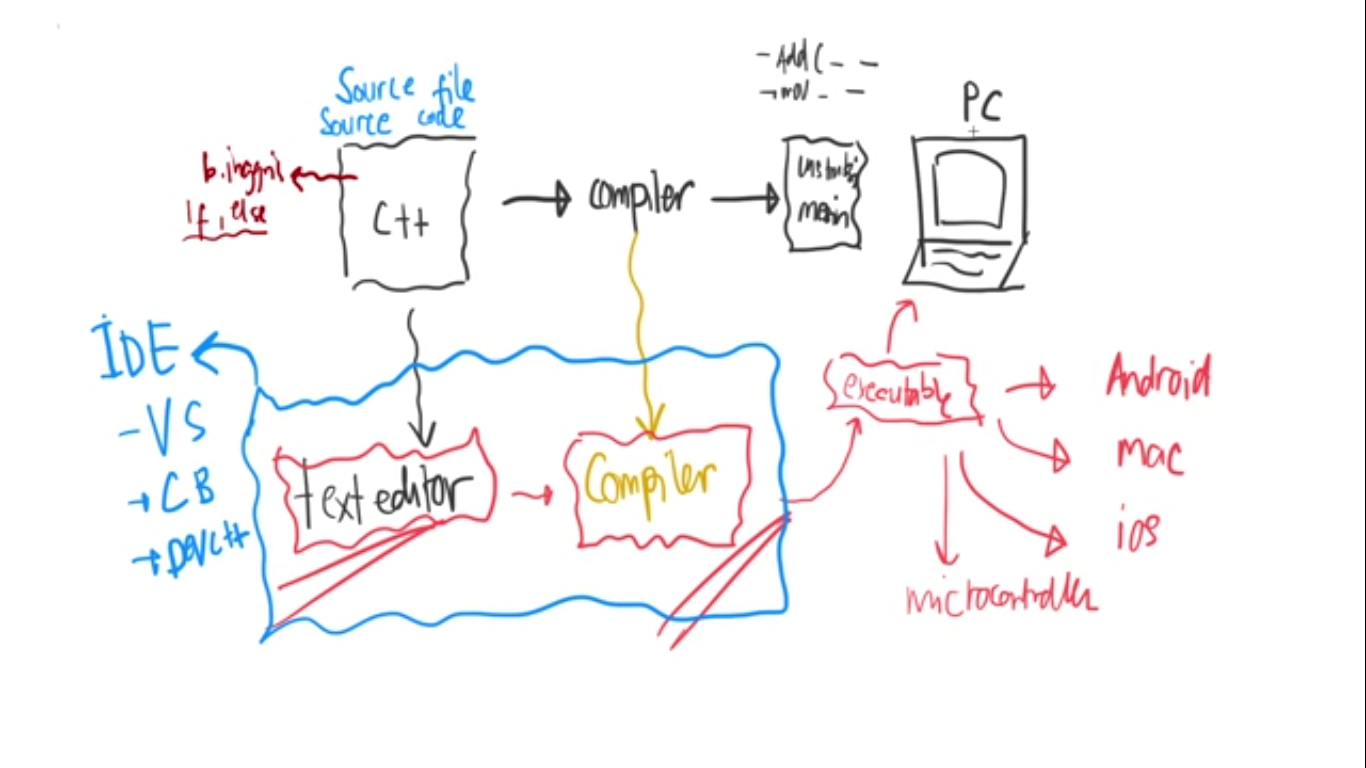 Source file
Source code
- Add ( - -
→ mov - -
PC
b. inggris
If, else
C++
compiler
mesin
IDE
- VS
→ CB
→ DEVC++
text editor
Compiler
executable
Android
mac
ios
microcontroller